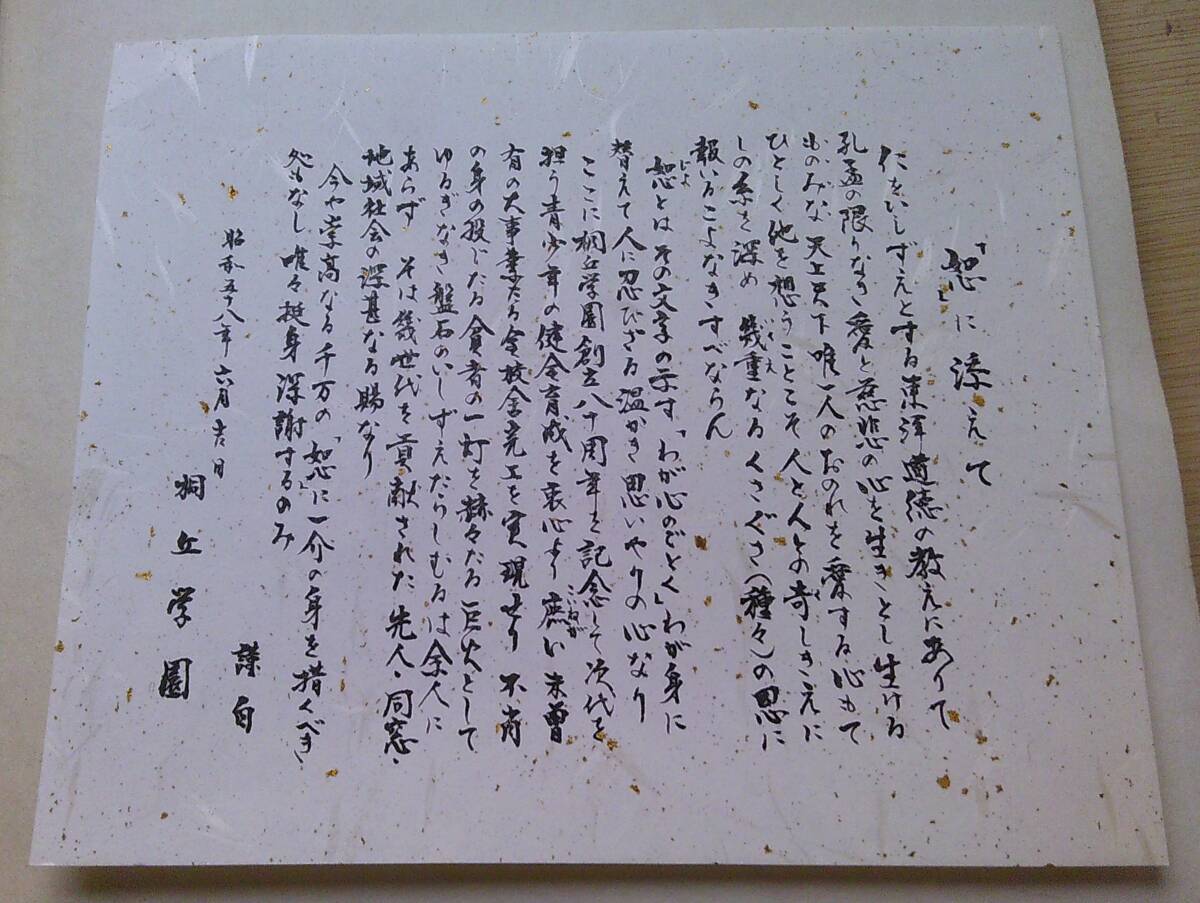 「恕」に添えて
仁をいしずえとする東洋道徳の教えにありて
孔孟の限りなき愛と慈悲の心を生きとし生ける
ものみな 天上天下唯一人のおのれを愛する心もて
ひとしく他を想うことこそ人と人との奇しきえに
しの糸を深め 幾重なるくさぐさ(種々)の恩に
報いるこよなきすべならん
恕とはその文字の示す「わが心のごとく」わが身に
替えて人に忍びざる温かき思いやりの心なり
ここに桐丘学園創立八十周年を記念して次代を
担う青少年の健全育成を衷心より庶い未曽
有の大事業たる全校舎完工を実現せり 不肖
の身の投じたる貧者の一灯を赫々たる巨火として
ゆるぎなき盤石のいしずえたらしむるは余人に
あらず そは幾世代を貢献された先人・同窓・
地域社会の深甚なる賜なり
今や崇高なる千万の「恕」に一介の身を措くべき
処もなし 唯々挺身深謝するのみ
昭和五十八年六月吉日
謹白
桐丘学園